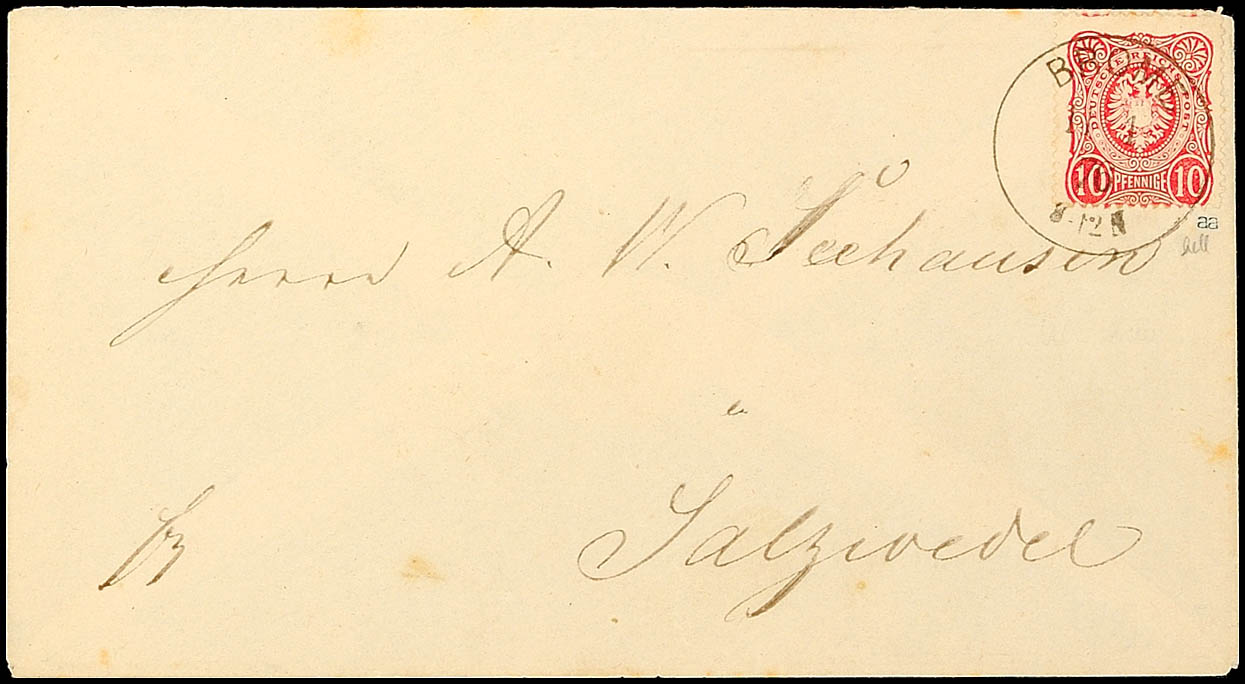 BROME
8-12 N
DEUTSCHE REICHS-POST
10 PFENNIGE 10
aa
hell
Herrn A. W. Seehausen
Salzwedel
fr